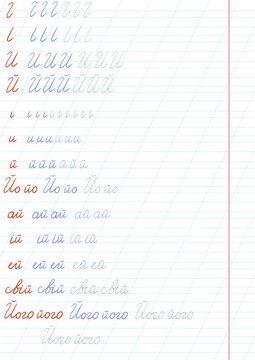 И И И И И И И
Й Й Й Й Й Й Й
и и и и и и
й й й й й й й
Йо йо Йо йо Йо йо
ай ай ай ай ай
ій ій ій ій ій
ей ей ей ей ей
свій свій свій свій
Його його Його його Його його
Його його